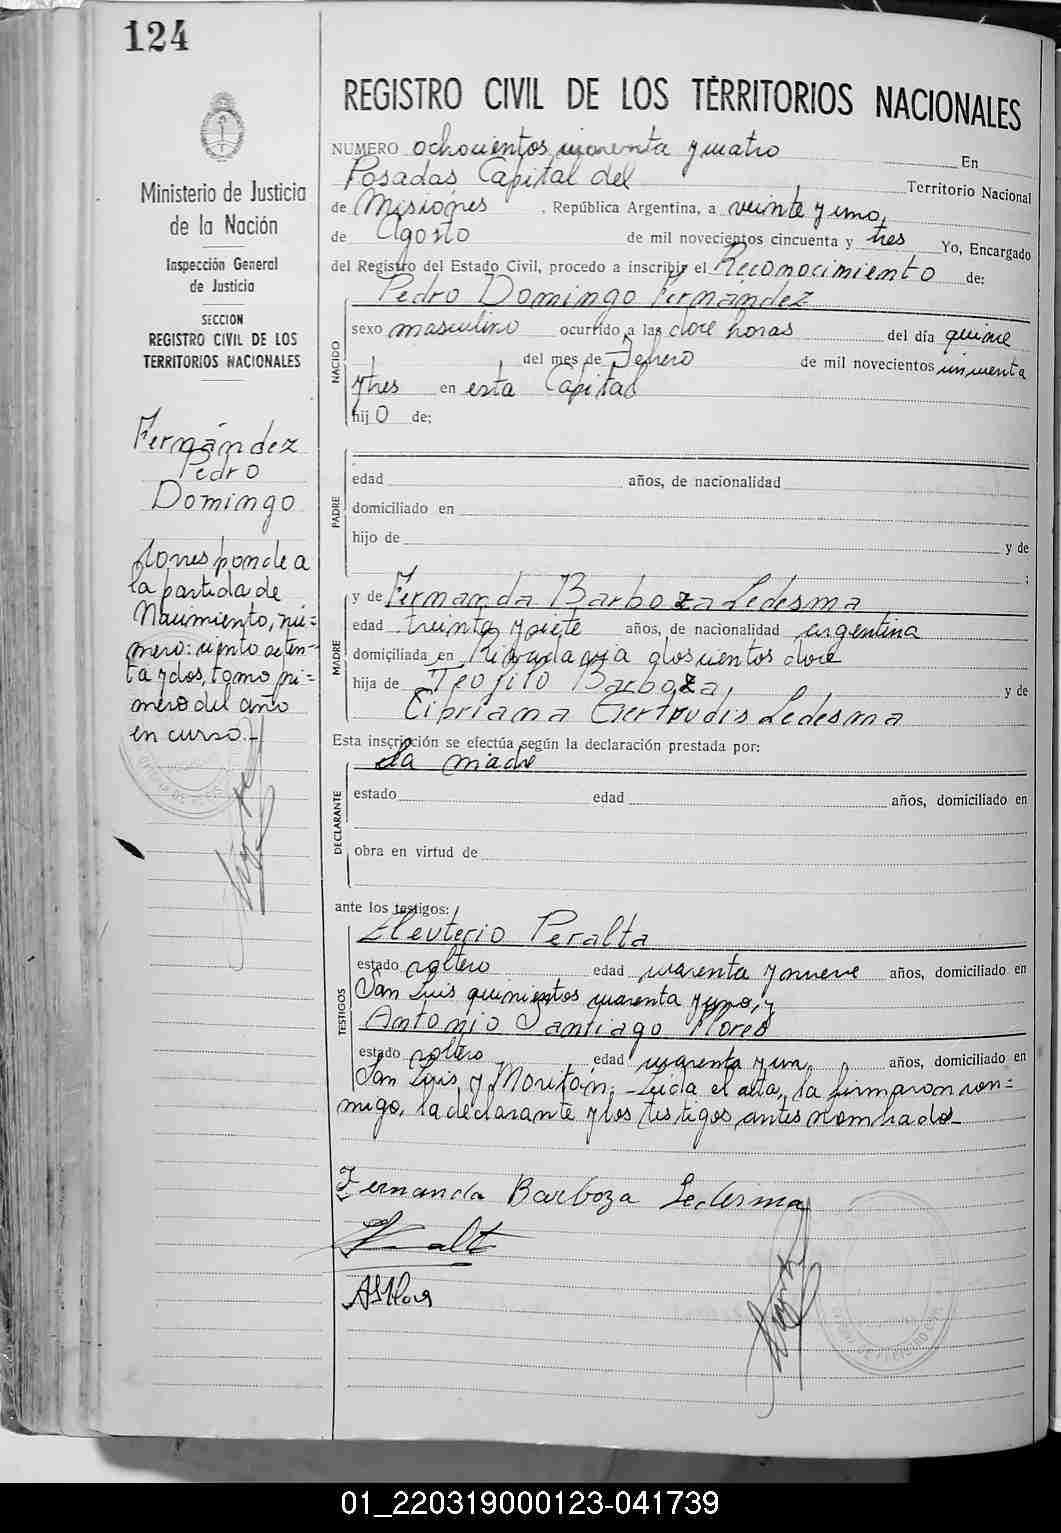 124
REGISTRO CIVIL DE LOS TERRITORIOS NACIONALES
Ministerio de Justicia
de la Nación
Inspección General
de Justicia
SECCION
REGISTRO CIVIL DE LOS
TERRITORIOS NACIONALES
Fernández
Pedro
Domingo
Corresponde a
la partida de
Nacimiento, nú=
mero: ciento seten-
ta y dos, tomo pri=
mero del año
en curso.-
NUMERO ochocientos cuarenta y cuatro En
Posadas Capital del Territorio Nacional
de Misiones , República Argentina, a veinte y uno,
de Agosto de mil novecientos cincuenta y tres Yo, Encargado
del Registro del Estado Civil, procedo a inscribir el Reconocimiento de:
NACIDO
Pedro Domingo Fernández
sexo masculino ocurrido a las doce horas del día quince
del mes de Febrero de mil novecientos cincuenta
y tres en esta Capital
hijo de;
PADRE
edad años, de nacionalidad
domiciliado en
hijo de y de
;
MADRE
y de Fernanda Barboza Ledesma
edad treinta y siete años, de nacionalidad argentina
domiciliada en Rivadavia doscientos doce
hija de Teofilo Barboza, y de
Cipriana Gertrudis Ledesma
Esta inscripción se efectúa según la declaración prestada por:
DECLARANTE
La madre
estado edad años, domiciliado en
obra en virtud de
ante los testigos:
TESTIGOS
Eleuterio Peralta
estado soltero edad cuarenta y nueve años, domiciliado en
San Luis quinientos cuarenta y uno, y
Antonio Santiago Flores
estado soltero edad cuarenta y un años, domiciliado en
San Luis y Moritán.- Leida el acta, la firmaron con=
migo, la declarante y los testigos antes nombrados-
Fernanda Barboza Ledesma
ASFlores
01_220319000123-041739